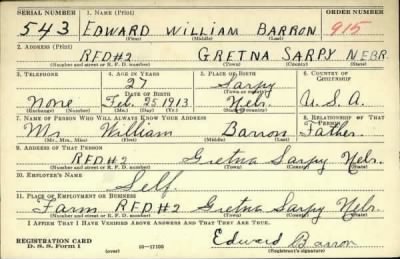 SERIAL NUMBER 1. NAME (Print) ORDER NUMBER
543 EDWARD WILLIAM BARRON 915
(First) (Middle) (Last)
2. ADDRESS (Print)
RFD#2 GRETNA SARPY NEBR.
(Number and street or R. F. D. number) (Town) (County) (State)
3. TELEPHONE 4. AGE IN YEARS 5. PLACE OF BIRTH 6. COUNTRY OF CITIZENSHIP
27 Sarpy
DATE OF BIRTH (Town or county)
None Feb. 25 1913 Nebr. U.S.A.
(Exchange) (Number) (Mo.) (Day) (Yr.) (State or country)
7. NAME OF PERSON WHO WILL ALWAYS KNOW YOUR ADDRESS 8. RELATIONSHIP OF THAT PERSON
Mr. William Barron Father.
(Mr., Mrs., Miss) (First) (Middle) (Last)
9. ADDRESS OF THAT PERSON
RFD#2 Gretna Sarpy Nebr.
(Number and street or R. F. D. number) (Town) (County) (State)
10. EMPLOYER'S NAME
Self.
11. PLACE OF EMPLOYMENT OR BUSINESS
Farm RFD#2 Gretna Sarpy Nebr.
(Number and street or R. F. D. number) (Town) (County) (State)
I AFFIRM THAT I HAVE VERIFIED ABOVE ANSWERS AND THAT THEY ARE TRUE.
REGISTRATION CARD
D. S. S. FORM 1 (over) 16—17105
Edward Barron
(Registrant's signature)